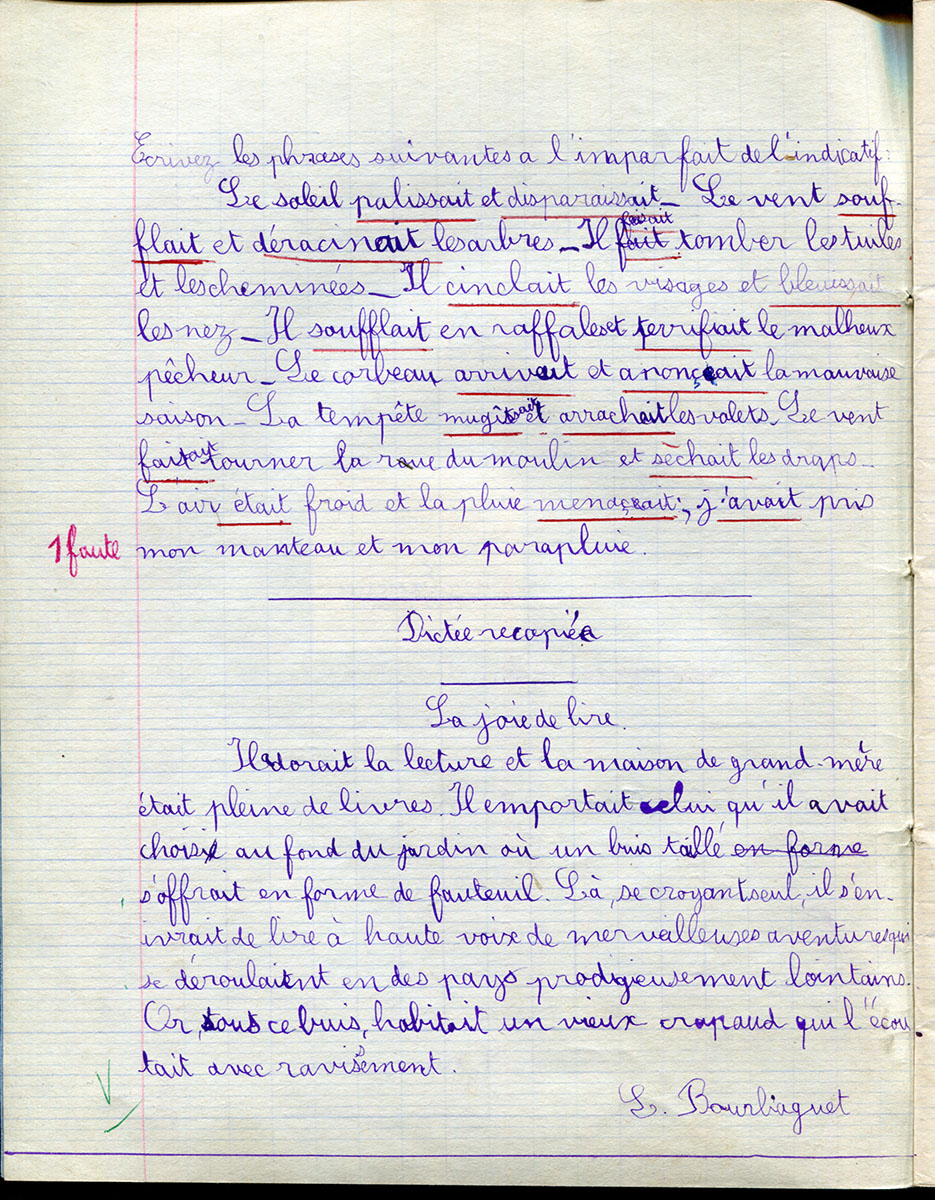 Ecrivez les phrases suivantes a l'imparfait de l'indicatif :
Le soleil palissait et disparaissait_ Le vent souf-
flait et déracinait les arbres_ Il faisait tomber les tuiles
et les cheminées_ Il cinclait les visages et bleuissait
les nez_ Il soufflait en raffales et terrifiait le malheux
pêcheur_ Le corbeau arrivait et anonçait la mauvaise
saison_ La tempête mugissait et arrachait les valets. Le vent
faisait tourner la roue du moulin et sèchait les draps_
L'air était froid et la pluie menaçeait ; j'avait pris
1 faute mon manteau et mon parapluie.
Dictée recopiée
La joie de lire.
Il adorait la lecture et la maison de grand-mère
était pleine de livres. Il emportait celui qu'il avait
choisi au fond du jardin où un buis taillé en forme
s'offrait en forme de fauteuil. Là, se croyant seul, il s'en-
ivrait de lire à haute voix de merveilleuses aventures qui
se déroulaient en des pays prodigieusement lointains.
Or, sous ce buis, habitait un vieux crapaud qui l'écou
tait avec ravissement.
L. Bourliaguet